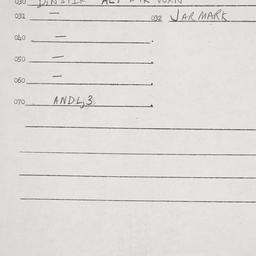 030
031 — 032 JARMARK
040 —
050 —
060 —
070 ANDLj3